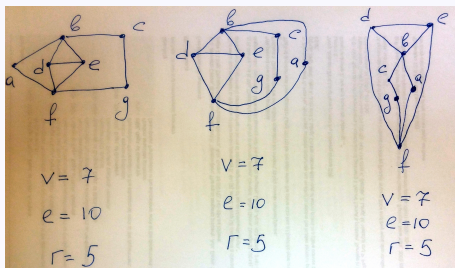 b c
a d e
f g
v = 7
e = 10
r = 5
b
d e c
g a
f
v = 7
e = 10
r = 5
d e
b
c a
g
f
v = 7
e = 10
r = 5